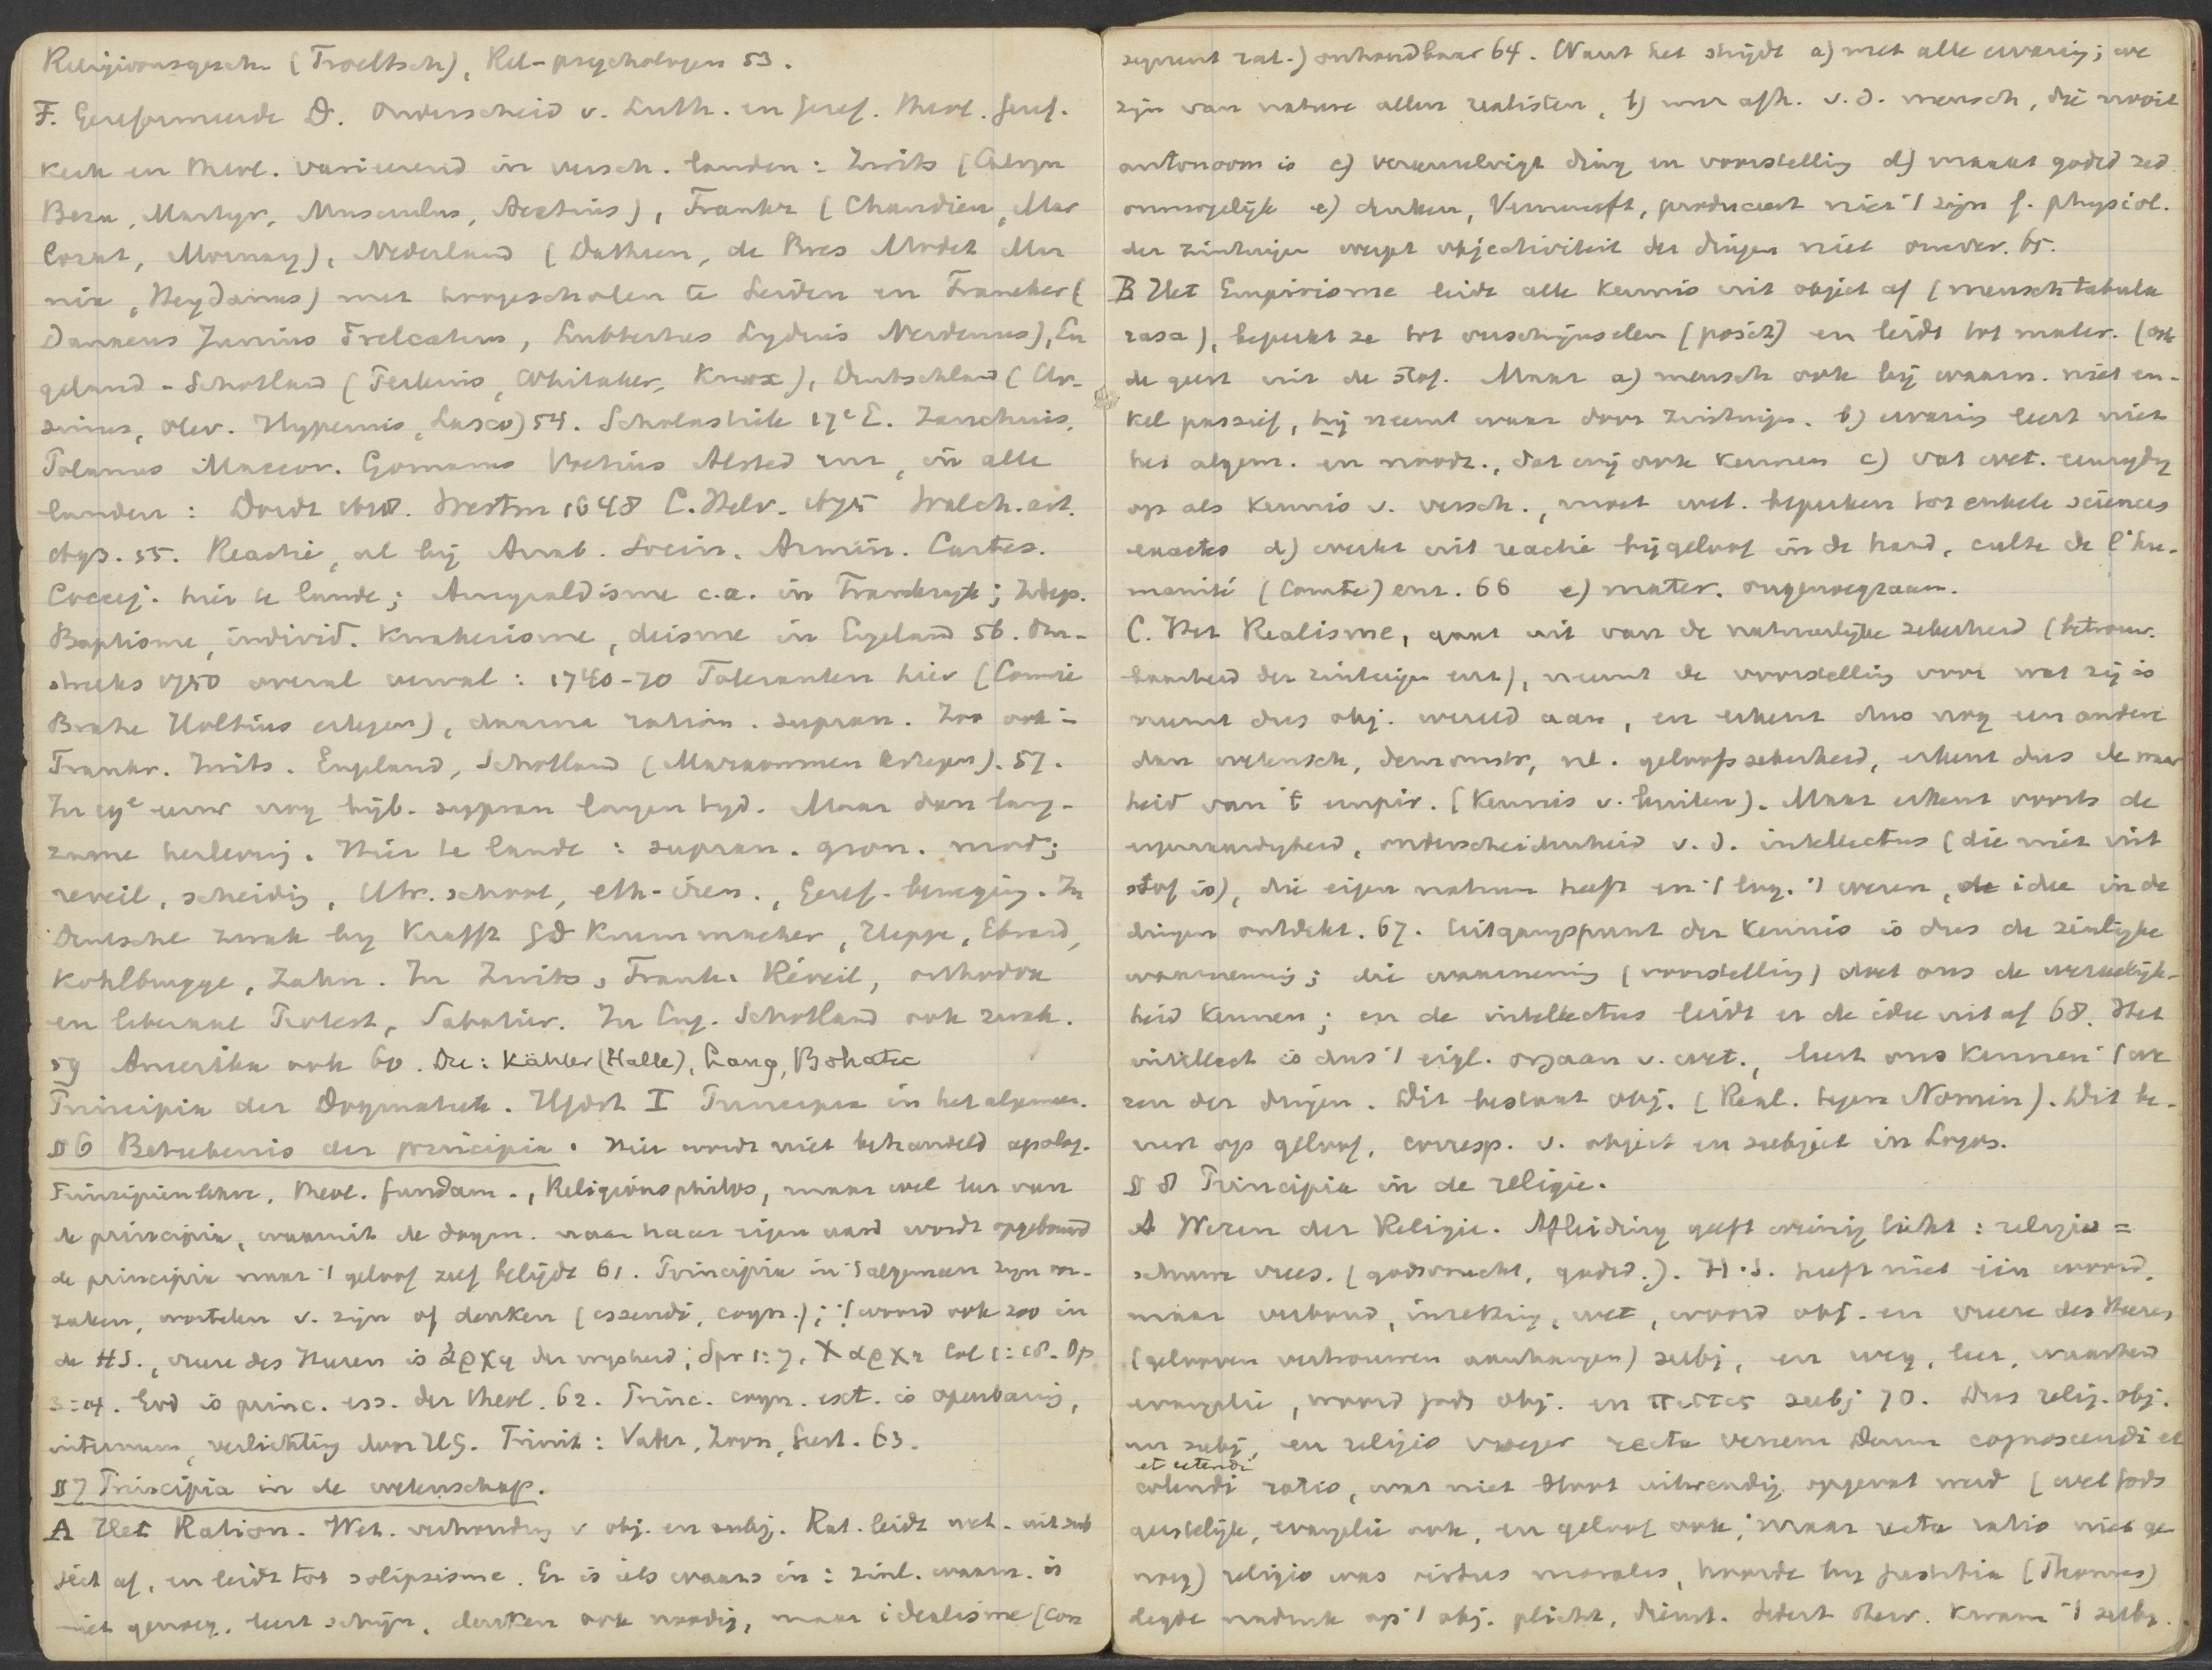 Religionsgesch. (Troeltsch), Rel-psychologen 53.
F. Gereformeerde D. Onderscheid v. Luth. en Geref. theol. Geref.
kerk en theol. varieerend in versch. landen: Zwits (Calvyn
Beza, Martyr, Musculus, Aretius), Frankr (Chandieu, Mar
lorat, Mornay), Nederland (Datheen, de Bres Modet Mar
nix, Heydanus) met hoogescholen te Leiden en Franeker (
Danaeus Junius Trelcatius, Lubbertus Lydius Nerdenus), En
geland - Schotland (Perkins, Whitaker, Knox), Duitschland (Ur-
sinus, Olev. Hyperius, Lasco) 54. Scholastiek 17e E. Zanchius,
Polanus Maccov. Gomarus Voetius Alsted enz, in alle
landen: Dordt 1618. Westm 1648 C. Helv. 1675 Walch. art.
1693. 55. Reactie, al bij Anab. Socin. Armin. Cartes.
Coccej. hier te lande; Amyraldisme c.a. in Frankryk; Indep.
Baptisme, individ. Kwakerisme, deisme in Engeland 56. Om-
streeks 1750 overal verval: 1740-70 Toleranten hier (Comrie
Brahe Holtius ertegen), daarna ration. supran. Zoo ook in
Frankr. Zwits. Engeland, Schotland (Marrowmen ertegen). 57.
In 19e eeuw nog bijb. suppran langen tyd. Maar dan lang-
zame herleving. Hier te lande: supran. gron. mod;
reveil, scheidig, Utr. school, eth-iren., Geref. beweging. In
Deutschl zwak by Krafft GD Krummacher, Heppe, Ebrard,
Kohlbrugge, Zahn. In Zwits, Frank. Réveil, orthodox
en liberaal Protest, Sabatier. In Eng. Schotland ook zwak.
59 Amerika ook 60. Du: Kähler (Halle), Lang, Bohatec
Principia der Dogmatiek. Hfdst I Principia in het algemeen.
§ 6 Beteekenis der principia. Hier wordt niet behandeld apolog.
Prinzipienlehre, theol. fundam., Religionsphilos, maar wel leer van
de principia, waaruit de dogm. naar haar eigen aard wordt opgebouwd
de principia naar 't geloof zelf belijdt 61. Principia in 't algemeen zyn oor-
zaken, wortelen v. zijn of denken (essendi, cogn.); 't woord ook zoo in
de HS., vreeze des Heeren is ἀρχη der wysheid; Spr 1:7, Χ αρχη Col 1:18. Op
3:14. God is princ. ess. der theol. 62. Princ. cogn. ext. is openbaring,
internum, verlichting door HG. Trinit: Vader, Zoon, Geest. 63.
§ 7 Principia in de wetenschap.
A Het Ration. Wet. verhouding v obj. en subj. Rat. leidt wet. uit sub
ject af, en leidt tot solipsisme. Er is iets waars in: zinl. waarn. is
niet genoeg, leert schijn, denken ook noodig, maar idealisme (con
sequent rat.) onhoudbaar 64. Want het strijdt a) met alle ervaring; we
zijn van nature allen realisten, b) met afh. v.d. mensch, die nooit
autonoom is c) vereenzelvigt ding en voorstelling d) maakt godsd zed
onmogelijk e) denken, Vernunft, produceert niet 't zijn f. physiol.
der zintuigen werpt objectiviteit der dingen niet omver. 65.
B Het Empirisme leidt alle kennis uit object af (mensch tabula
rasa), beperkt ze tot verschijnselen (posit) en leidt tot mater. (ook
de geest uit de stof. Maar a) mensch ook bij waarn. niet en-
kel passief, hij neemt waar door zintuigen. b) ervaring leert niet
het algem. en noodz., dat wij ook kennen c) vat wet. eenzydig
op als kennis v. versch., moet wet. beperken tot enkele sciences
exactes d) werkt uit reactie bijgeloof in de hand, culte de l'hu-
manité (Comte) enz. 66 e) mater. ongenoegzaam.
C. Het Realisme, gaat uit van de natuurlyke zekerheid (betrouw-
baarheid der zintuigen enz), neemt de voorstelling voor wat zij is
neemt dus obj. wereld aan, en erkent dus nog een andere
dan wetensch, demonstr, nl. geloofszekerheid, erkent dus de waar
heid van 't empir. (kennis v. buiten). Maar erkent voorts de
eigenaardigheid, onderscheidenheid v. d. intellectus (die niet uit
stof is), die eigen natuur heeft en 't log. 't wezen, de idee in de
dingen ontdekt. 67. Uitgangspunt der kennis is dus de zinlijke
waarneming; die waarneming (voorstelling) doet ons de werkelijk-
heid kennen; en de intellectus leidt er de idee uit af 68. Het
intellect is dus 't eigl. orgaan v. wet., leert ons kennen 't we
zen der dingen. Dit bestaat obj. (Real. tegen Nomin). Dit be-
rust op geloof, corresp. v. object en subject in Logos.
§ 8 Principia in de religie.
A Wezen der Religie. Afleiding geeft weinig licht: religio =
schuwe vrees. (godsvrucht, godsd.). H.S. heeft niet één woord,
maar verbond, inzetting, wet, woord obj. en vreeze des Heeren
(gelooven vertrouwen aanhangen) subj, en weg, leer, waarheid
evangelie, woord Gods obj. en πιστις subj 70. Dus relig. obj.
en subj, en religio vroeger recta verum Deum cognoscendi et
et utendi
colendi ratio, was niet steeds uitwendig opgevat werd (wet Gods
geestelijk, evangelie ook, en geloof ook; maar recta ratio niet ge
noeg) religio was virtus morales, hoorde by justitia (Thomas)
legde nadruk op 't obj. plicht, dienst. Sedert Kerk. kwam 't subj.